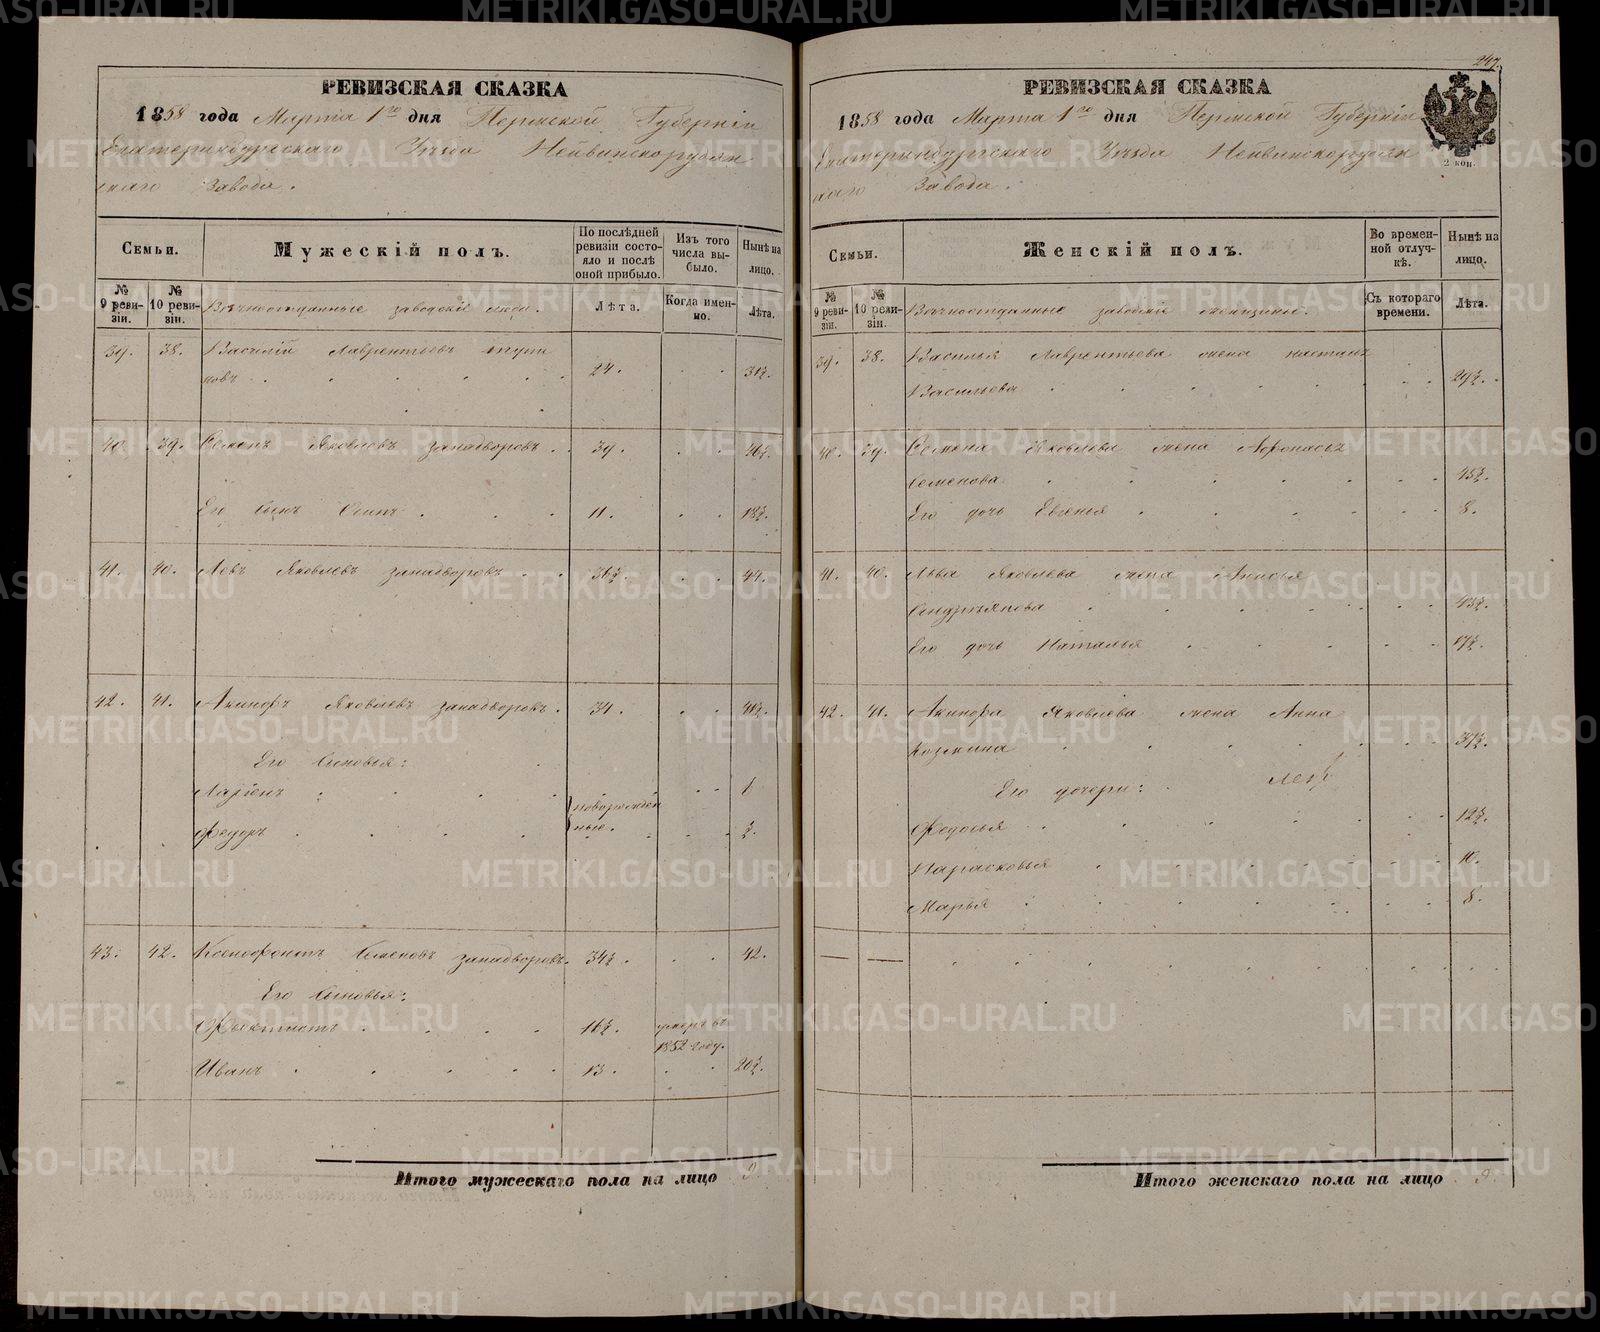 РЕВИЗСКАЯ СКАЗКА
1858 года Марта 1го дня Пермской Губерніи
Екатеринбургскаго Уѣзда Нейвинскорудян
скаго Завода.
Семьи.
Мужескій полъ.
По послѣдней ревизіи состояло и послѣ оной прибыло.
Изъ того числа выбыло.
Нынѣ на лицо.
№ 9 ревизіи.
№ 10 ревизіи.
Вѣчноотданные заводскіе люди.
Лѣта.
Когда именно.
Лѣта.
39. 38. Василій Лаврентьевъ
новъ 24. 31½.
40. 39. Семенъ Яковлевъ Западворовъ 39. 46½.
Его сынъ Осипъ 11. 18½.
41. 40. Левъ Яковлевъ Западворовъ 36½. 44.
42. 41. Акинфъ Яковлевъ Западворовъ. 34. 41½.
Его Сыновья:
Ларіонъ новорожден 6
Федоръ ные. ½.
43. 42. Ксенофонтъ Семеновъ Западворовъ. 34½. 42.
Его Сыновья:
16½. умеръ въ
1852 году.
Иванъ 13. 20½.
Итого мужескаго пола на лицо 9.
247.
РЕВИЗСКАЯ СКАЗКА
1858 года Марта 1го дня Пермской Губерніи
Екатеринбургскаго Уѣзда Нейвинскорудян
скаго Завода.
2 коп.
Семьи.
Женскій полъ.
Во временной отлучкѣ.
Нынѣ на лицо.
№ 9 ревизіи.
№ 10 ревизіи.
Вѣчноотданные заводскіе женщины.
Съ котораго времени.
Лѣта.
39. 38. Василья Лаврентьева жена Настасья
Васильева 29½.
40. 39. Семена Яковлева жена Афонасья
Семенова 45½.
Его дочь Евгенья 8.
41. 40. Льва Яковлева жена Анисья
Андреянова 43½.
Его дочь Наталья 17½.
42. 41. Акинфа Яковлева жена Анна
Козмина 37½.
Его дочери:
Федосья 12½.
Парасковья 10.
Марья 8.
Итого женскаго пола на лицо 9.
METRIKI.GASO-URAL.RU